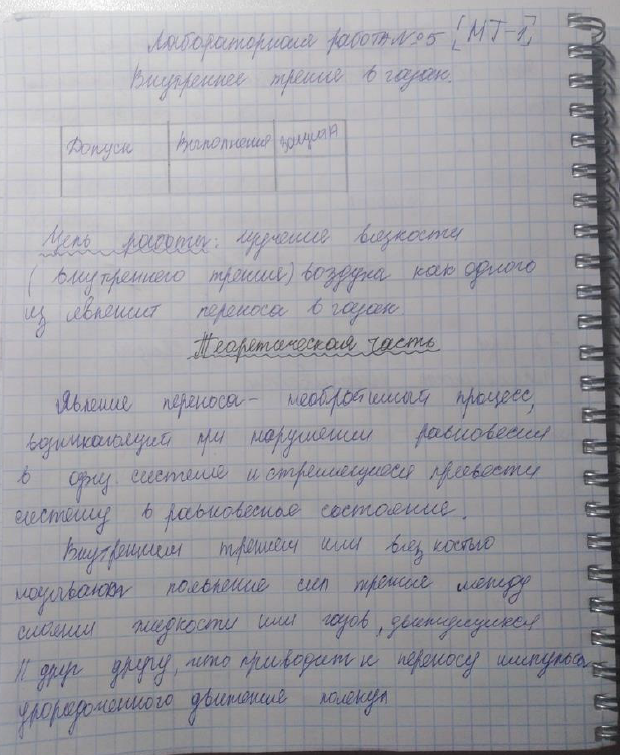 Лабораторная работа №5 [МТ-1]
Внутреннее трение в газах.
Допуск Выполнение Защита
Цель работы: изучение вязкости
(внутреннего трения) воздуха как одного
из явлений переноса в газах.
Теоретическая часть
Явление переноса - необратимый процесс,
возникающий при нарушении равновесия
в систему и стремящийся привести
систему в равновесное состояние.
Внутренним трением или вязкостью
называют появление сил трения между
слоями жидкости или газов, движущихся
|| друг другу, что приводит к переносу импульса
упорядоченного движения молекул